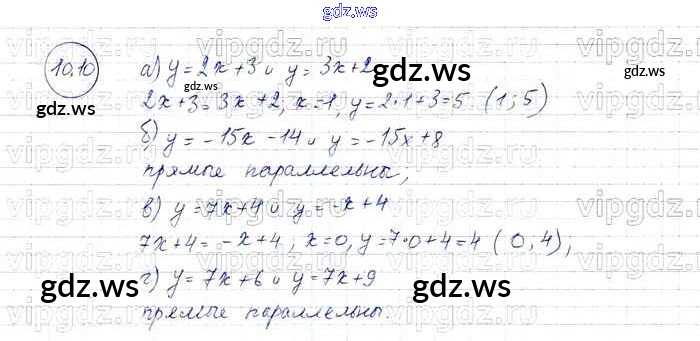 gdz.ws
10.10
а) y = 2x + 3 и y = 3x + 2
2x + 3 = 3x + 2, x = 1, y = 2·1 + 3 = 5 (1; 5)
б) y = -15x - 14 и y = -15x + 8
прямые параллельны;
в) y = 7x + 4 и y = -x + 4
7x + 4 = -x + 4; x = 0, y = 7·0 + 4 = 4 (0, 4),
г) y = 7x + 6 и y = 7x + 9
прямые параллельны.
gdz.ws
gdz.ws
gdz.ws
gdz.ws
gdz.ws
gdz.ws
gdz.ws
gdz.ws
vipgdz.ws